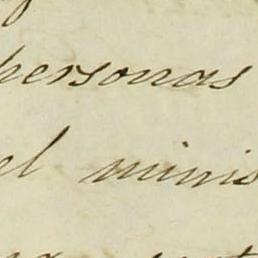 personas
el minis